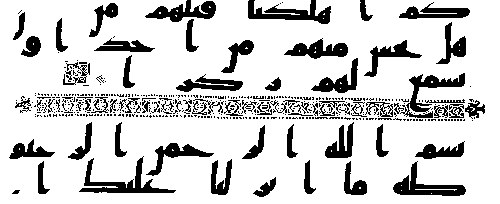 كم اهلكنا قبلهم من
هل تحس منهم من احد او
تسمع لهم ركزا
بسم الله الرحمن الرحيم
طه ما انزلنا عليك ا